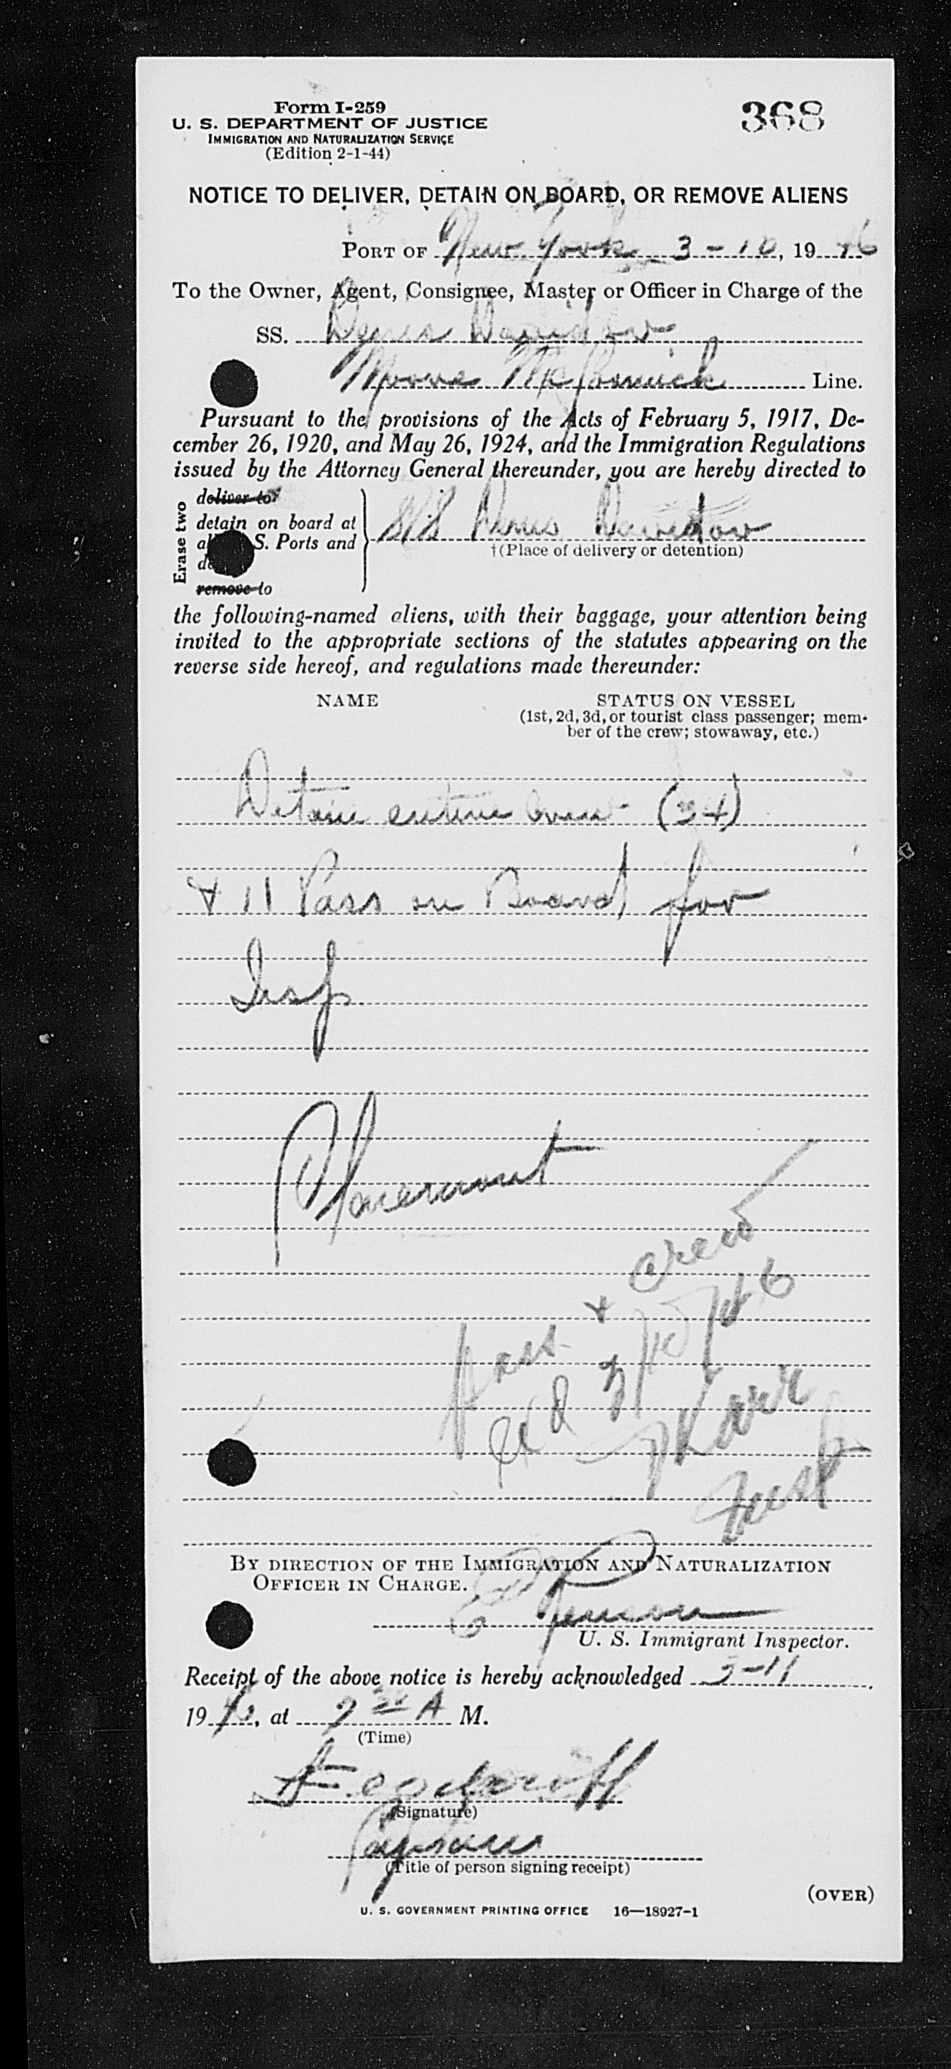 Form I-259
368
U. S. DEPARTMENT OF JUSTICE
IMMIGRATION AND NATURALIZATION SERVICE
(Edition 2-1-44)
NOTICE TO DELIVER, DETAIN ON BOARD, OR REMOVE ALIENS
PORT OF New York 3-10, 1946
To the Owner, Agent, Consignee, Master or Officer in Charge of the
SS. Denis Davidow
Moore McCormick Line.
Pursuant to the provisions of the Acts of February 5, 1917, De-
cember 26, 1920, and May 26, 1924, and the Immigration Regulations
issued by the Attorney General thereunder, you are hereby directed to
Erase two
deliver to
detain on board at
S. Ports and
remove to
S/S Denis Davidow
†(Place of delivery or detention)
the following-named aliens, with their baggage, your attention being
invited to the appropriate sections of the statutes appearing on the
reverse side hereof, and regulations made thereunder:
NAME
STATUS ON VESSEL
(1st, 2d, 3d, or tourist class passenger; mem-
ber of the crew; stowaway, etc.)
Detain entire crew (34)
+ 11 Pass on Board for
Insp
Claremont
Pass. + crew
3/10/46
Karr
Insp
BY DIRECTION OF THE IMMIGRATION AND NATURALIZATION
OFFICER IN CHARGE.
U. S. Immigrant Inspector.
Receipt of the above notice is hereby acknowledged 3-11
19, at A M.
(Time)
(Signature)
Captain
(Title of person signing receipt)
(OVER)
U. S. GOVERNMENT PRINTING OFFICE 16—18927-1